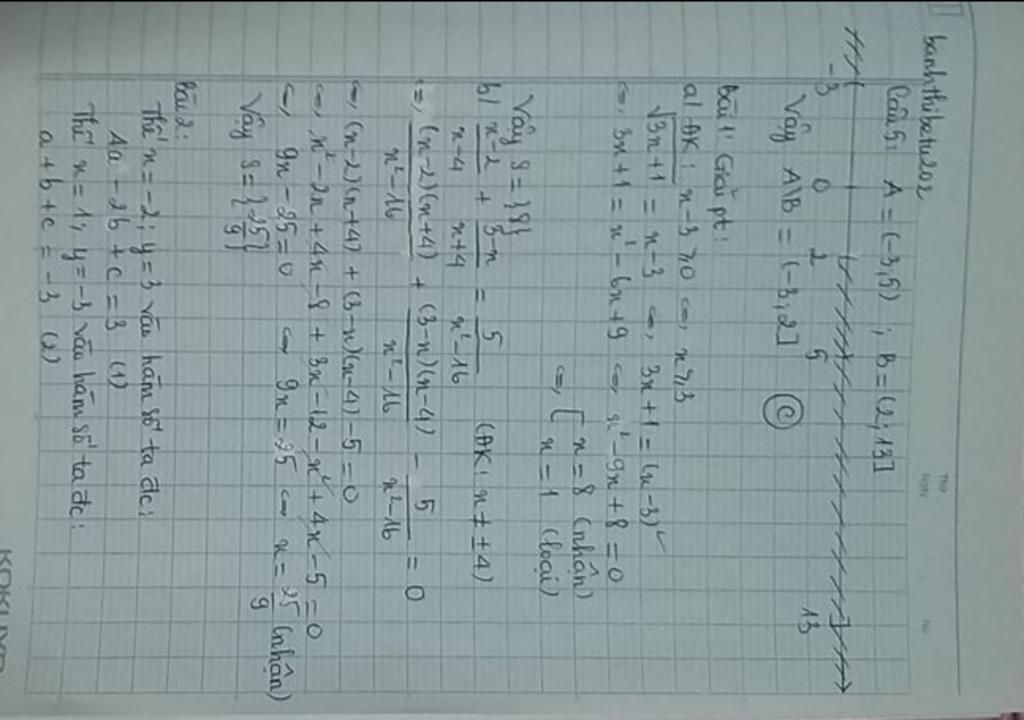 banhthibatu202
Câu 5: A = (-3;5) ; B = (2; 13]
-3 0 2 5 13
Vậy A\B = (-3; 2] Ⓒ
Bài 1: Giải pt:
a/ ĐK: x-3 ≥ 0 <=> x ≥ 3
√3x+1 = x-3 <=> 3x+1 = (x-3)²
<=> 3x+1 = x² - 6x+9 <=> x² - 9x + 8 = 0
<=> [ x = 8 (nhận)
x = 1 (loại)
Vậy S = {8}
b/ (x-2)/(x-4) + (3-x)/(x+4) = 5/(x²-16) (ĐK: x ≠ ±4)
<=> (x-2)(x+4)/(x²-16) + (3-x)(x-4)/(x²-16) - 5/(x²-16) = 0
<=> (x-2)(x+4) + (3-x)(x-4) - 5 = 0
<=> x² - 2x + 4x - 8 + 3x - 12 - x² + 4x - 5 = 0
<=> 9x - 25 = 0 <=> 9x = 25 <=> x = 25/9 (nhận)
Vậy S = {25/9}
Bài 2:
Thế x = -2; y = 3 vào hàm số ta đc:
4a - 2b + c = 3 (1)
Thế x = 1; y = -3 vào hàm số ta đc:
a + b + c = -3 (2)